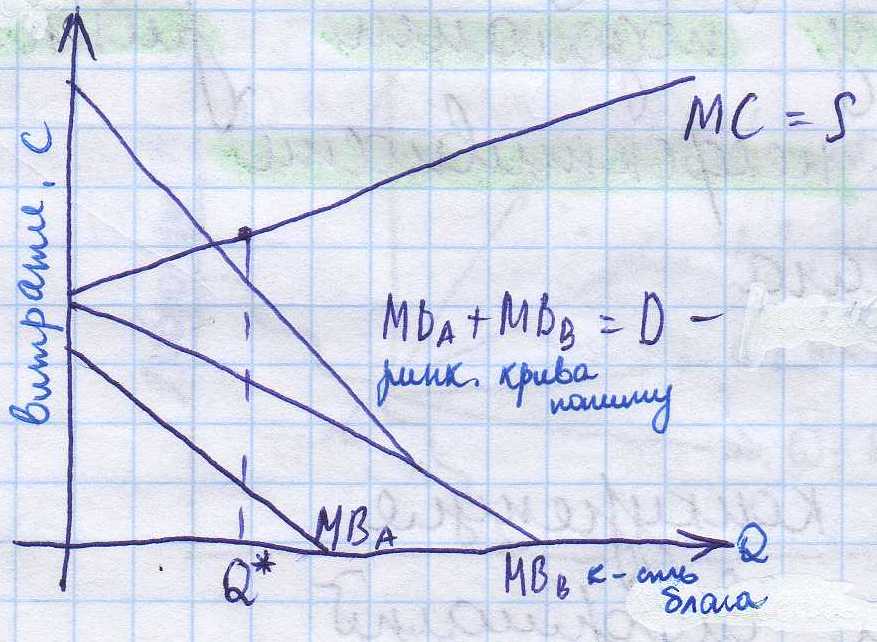 витрати, С
MC = S
MB_A + MB_B = D –
ринк. крива
попиту
MB_A
Q*
MB_B
к-сть
блага
Q